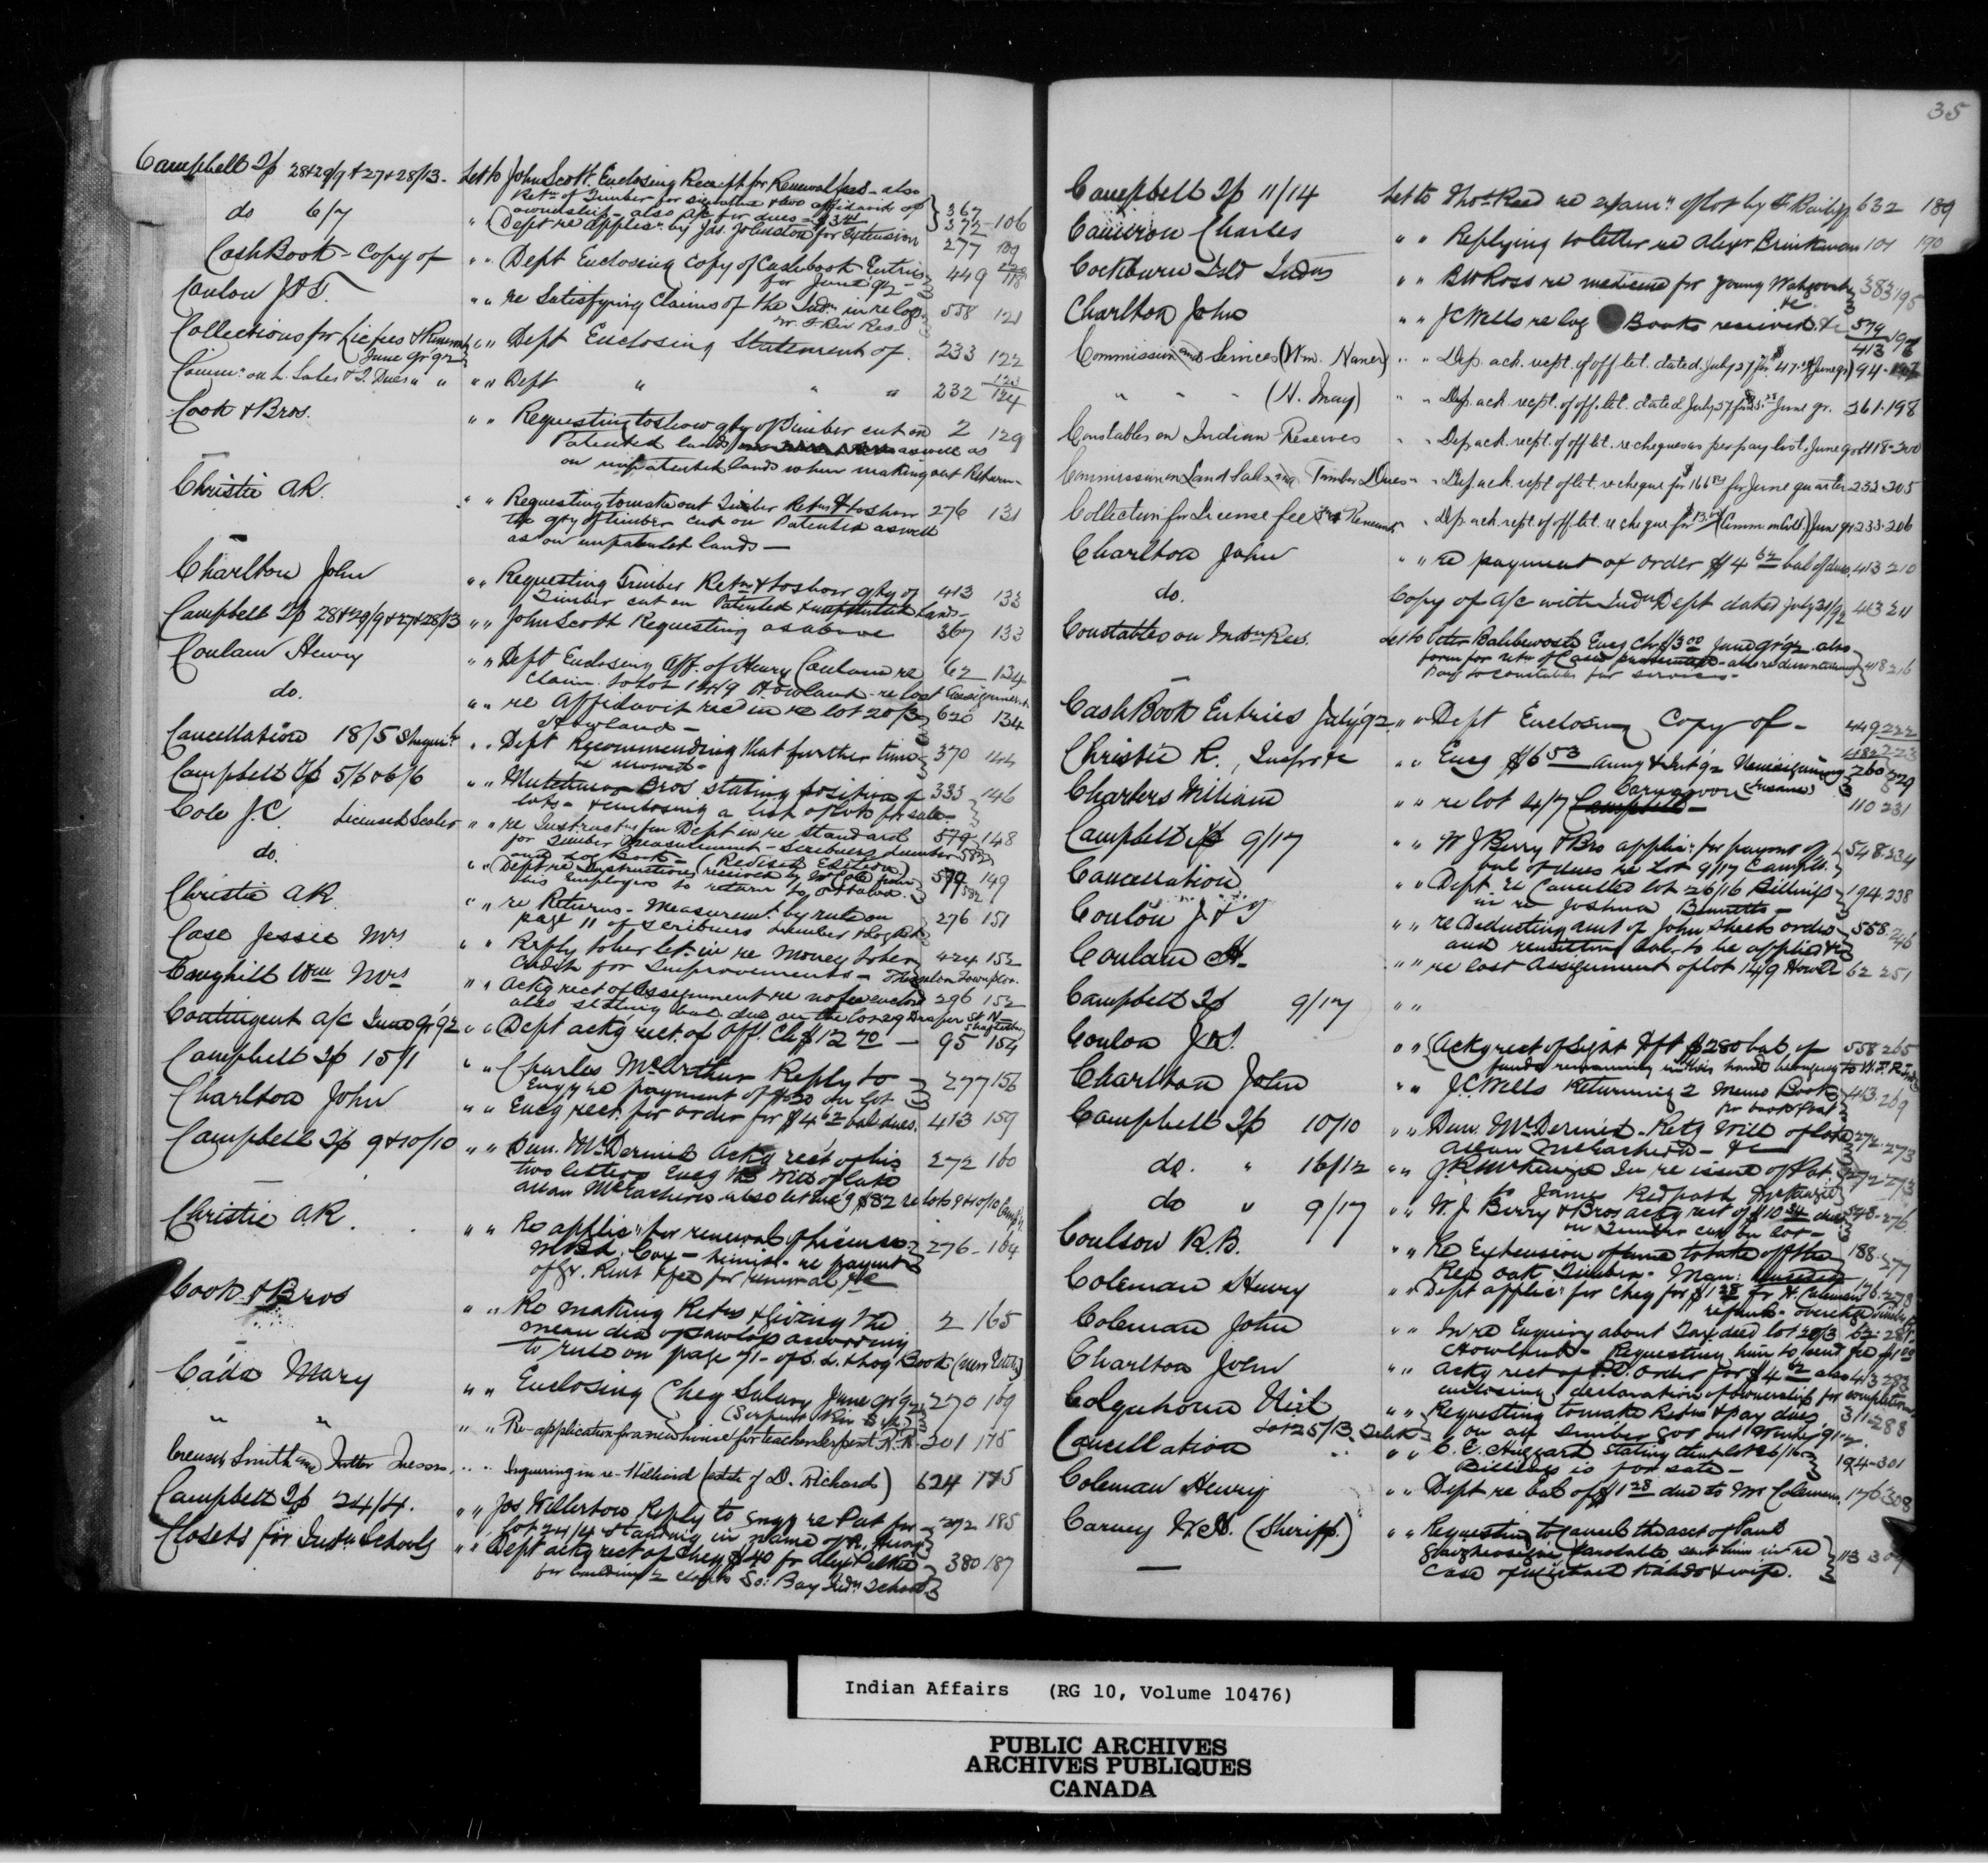 35
Campbell Tp 28+29/9 + 27+28/13. Let to John Scott Enclosing Receipt for Renewal fees - also
Retn of Timber for signature + two affidavits of
ownership - also a/c for dues - 367
372 - 106
do 6/7 " Dept re applicn by Jas. Johnston for Extension 277 109
Cash Book - Copy of " " Dept Enclosing Copy of Cashbook Entries
for June 92 - 449 118
Coulon J & T. " " re Satisfying Claims of the Indns in re logs 558 121
Collections for Licfees & Renewals
June qr 92 " " Dept Enclosing Statement of 233 122
Commn on L. Sales & T. Dues " " " " Dept " " " 232 124
Cook & Bros. " " Requesting to show qty of Timber cut on 2 129
Patented lands as well as
on unpatented lands when making out Return -
Christie A.R. " " Requesting to make out Timber Retns & to show 276 131
the qty of timber cut on Patented as well
as on unpatented lands -
Charlton John " " Requesting Timber Retns & to show qty of 413 133
Timber cut on Patented & unpatented Lands -
Campbell Tp 28+29/9+27+28/13 " " John Scott Requesting as above 367 133
Coulam Henry " " Dept Enclosing Aff. of Henry Coulam re 62 134
Claim to Lot 14/9 Howland - re lost Assignment
do. " " re Affidavit recd in re lot 20/3 620 134
Howland -
Cancellation 18/5 " " Dept Recommending that further time 370 144
be allowed -
Campbell Tp 5/6 & 6/6 " " Bros stating position of 333 146
lots - & enclosing a list of lots for sale -
Cole J.C. Licensed Scaler " " re Instructns from Dept in re Standard 579 148
for Timber Measurement - Scribners Lumber
and Log Book - (Revised Edition)
do. " " Dept re Instructions received by Mr Cole from 579 149
his Employers to return to Ottawa.
Christie A.R. " " re Returns - Measuremt by rule on 276 151
page 11 of Scribners Lumber & Log Bk
Case Jessie Mrs " " Reply to her let. in re Money to her 424 152
Credit for Improvements -
Coughill Wm Mrs " " Ackg rect of Assignment re no fee enclosed 296 152
also stating bal. due on the lot 29 Draper St N -
Contingent a/c June qr 92 " " Dept ackg rect. of Off. Ch $12 70 - 95 154
Campbell Tp 15/1 " " Charles McArthur Reply to 277 156
Enqy re payment of $20 on lot
Charlton John " " Encg rect. for order for $4 62 bal. dues. 413 159
Campbell Tp 9+10/10 " " Dun. McDermid Ackg rect of his 272 160
two letters Encg the Will of late
Allan McEachern also let encg $82 re lots 9+10/10 Camp'l
Christie A.R. " " Re applicn for renewal of License 276 - 164
of Gr. Rent & fee for renewal &c
Cook & Bros " " Re making Retns & giving the 2 165
mean dia of sawlogs according
to rule on page 71 - of S. L. & Log Book (New Edition)
Cada Mary " " Enclosing Cheq Salary June qr 92 270 169
(Serpent Riv Sch)
" " " " Re-application for a new house for teacher Serpent R.R. 201 175
" " Inquiring in re - Hilliard (estate of D. Richard) 624 175
Campbell Tp 24/4. " " Jos Willerton Reply to Enqy re Pat for 272 185
Lot 24/4 standing in name of R.
Closets for Indn Schools " " Dept ackg rect of Cheq $40 fr Alex
for building 2 closets So: Bay Indn School 380 187
Campbell Tp 11/14 Let to Thos Reed re examn of lot by 632 189
Cameron Charles " " Replying to letter re Alex Brinkman 101 190
Cockburn Isld Indns " " B W Ross re medicine for young 383 195
&c
Charlton John " " J C Wells re log Book received &c 579
413 197
Commission and Services (Wm. Haner) " " Dep. ack. recpt. of off. let. dated July 27 for $47 (June qr) 94
" " " (H. May) " " Dep. ack. recpt. of off. let. dated July 27 June qr. 261 - 198
Constables on Indian Reserves " " Dep. ack. recpt. of off. let. re cheques as per pay list. June qr 418 - 200
Commission on Land Sales and Timber Dues - " " Dep. ack. recpt of let. re cheque for $166 for June quarter 232 - 205
Collection for License fee & Renewals " " Dep. ack. rept. of off. let. re cheque for (Comm on Coll.) June qr 233 - 206
Charlton John " " re payment of order $4 62 bal of dues. 413 210
do. Copy of a/c with Indn Dept dated July 31/92 413 211
Constables on Indn Res. Let to Encg Ch $3 00 June qr 92 also
form for retn of Cases - also re discontinuing
pay to constables for services - 418 216
Cash Book Entries July '92 " " Dept Enclosing Copy of - 449 222
Christie R., Inspr &c " " Encg $6 53 260 229
Charters William " " re lot 4/7 Carnarvon 110 231
Campbell Tp 9/17 " " W J Berry & Bro applicn for paymt of 548 - 234
bal of dues re lot 9/17 Campbl.
Cancellation " " Dept re Cancelled lot 26/16 Billings 194 - 238
in re Joshua Bennetts -
Coulon J & T " " re Deducting amt of John Sheets order 558 - 246
and remitting bal. to be applied &c
Coulam H. " " re lost Assignment of lot 14/9 Howld 62 251
Campbell Tp 9/17 " "
Coulon J & T. " " Ackg rect of Sight Dft $280 bal of 558 265
funds remaining in his hands belonging to W. F. R. Inds
Charlton John " " J.C. Wells Returning 2 Memo Books 413 - 269
per book post
Campbell Tp 10/10 " " Dun. McDermid - Retg Will of late 272 - 273
Allan McEachern - &c
do. " 16/12 " " J.R. McKenzie In re issue of Pat. 272 - 273
to James Redpath McKenzie
do " 9/17 " " W. J. Berry & Bros ackg rect of $10 34 dues 548 - 276
on Timber cut on lot -
Coulson R.B. " " Re Extension of time to take off the 188 - 277
Red oak Timber -
Coleman Henry " " Dept applicn for Cheq for $1 28 for H. Coleman 176 - 278
refund - overchge Timber
Coleman John " " In re Enquiry about Tax deed lot 20/3 62 - 281
Howland - Requesting him to send fee $1 00
Charlton John " " Ackg rect of P.O. Order for $4 62 also 413 283
enclosing declaration of ownership for completion
Colquhoun Neil " " Requesting to make Retns & pay dues 311 - 288
Lot 25/13. on all Timber got out Winter 91-2.
Cancellation " " C. E. Haggard stating that lot 26/16 194 - 301
Billings is for sale -
Coleman Henry " " Dept re bal of $1 28 due to Mr Coleman. 176 308
Carney W.H. (Sheriff.) " " Requesting to cancel the acct of Paul
Constable sent him in re
Case of & wife. 113 309
Indian Affairs (RG 10, Volume 10476)
PUBLIC ARCHIVES
ARCHIVES PUBLIQUES
CANADA